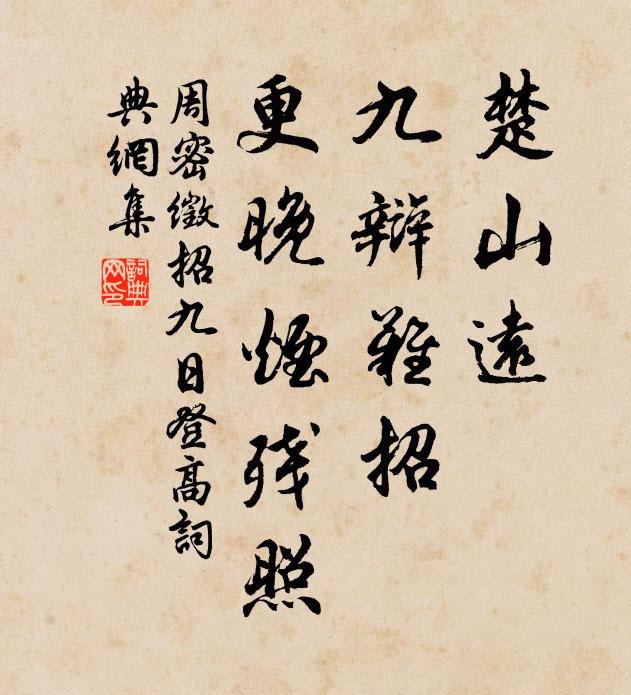 楚山遠
九辯難招
更晚煙残照
周密徵招九日登高詞
典網集
詞典網印